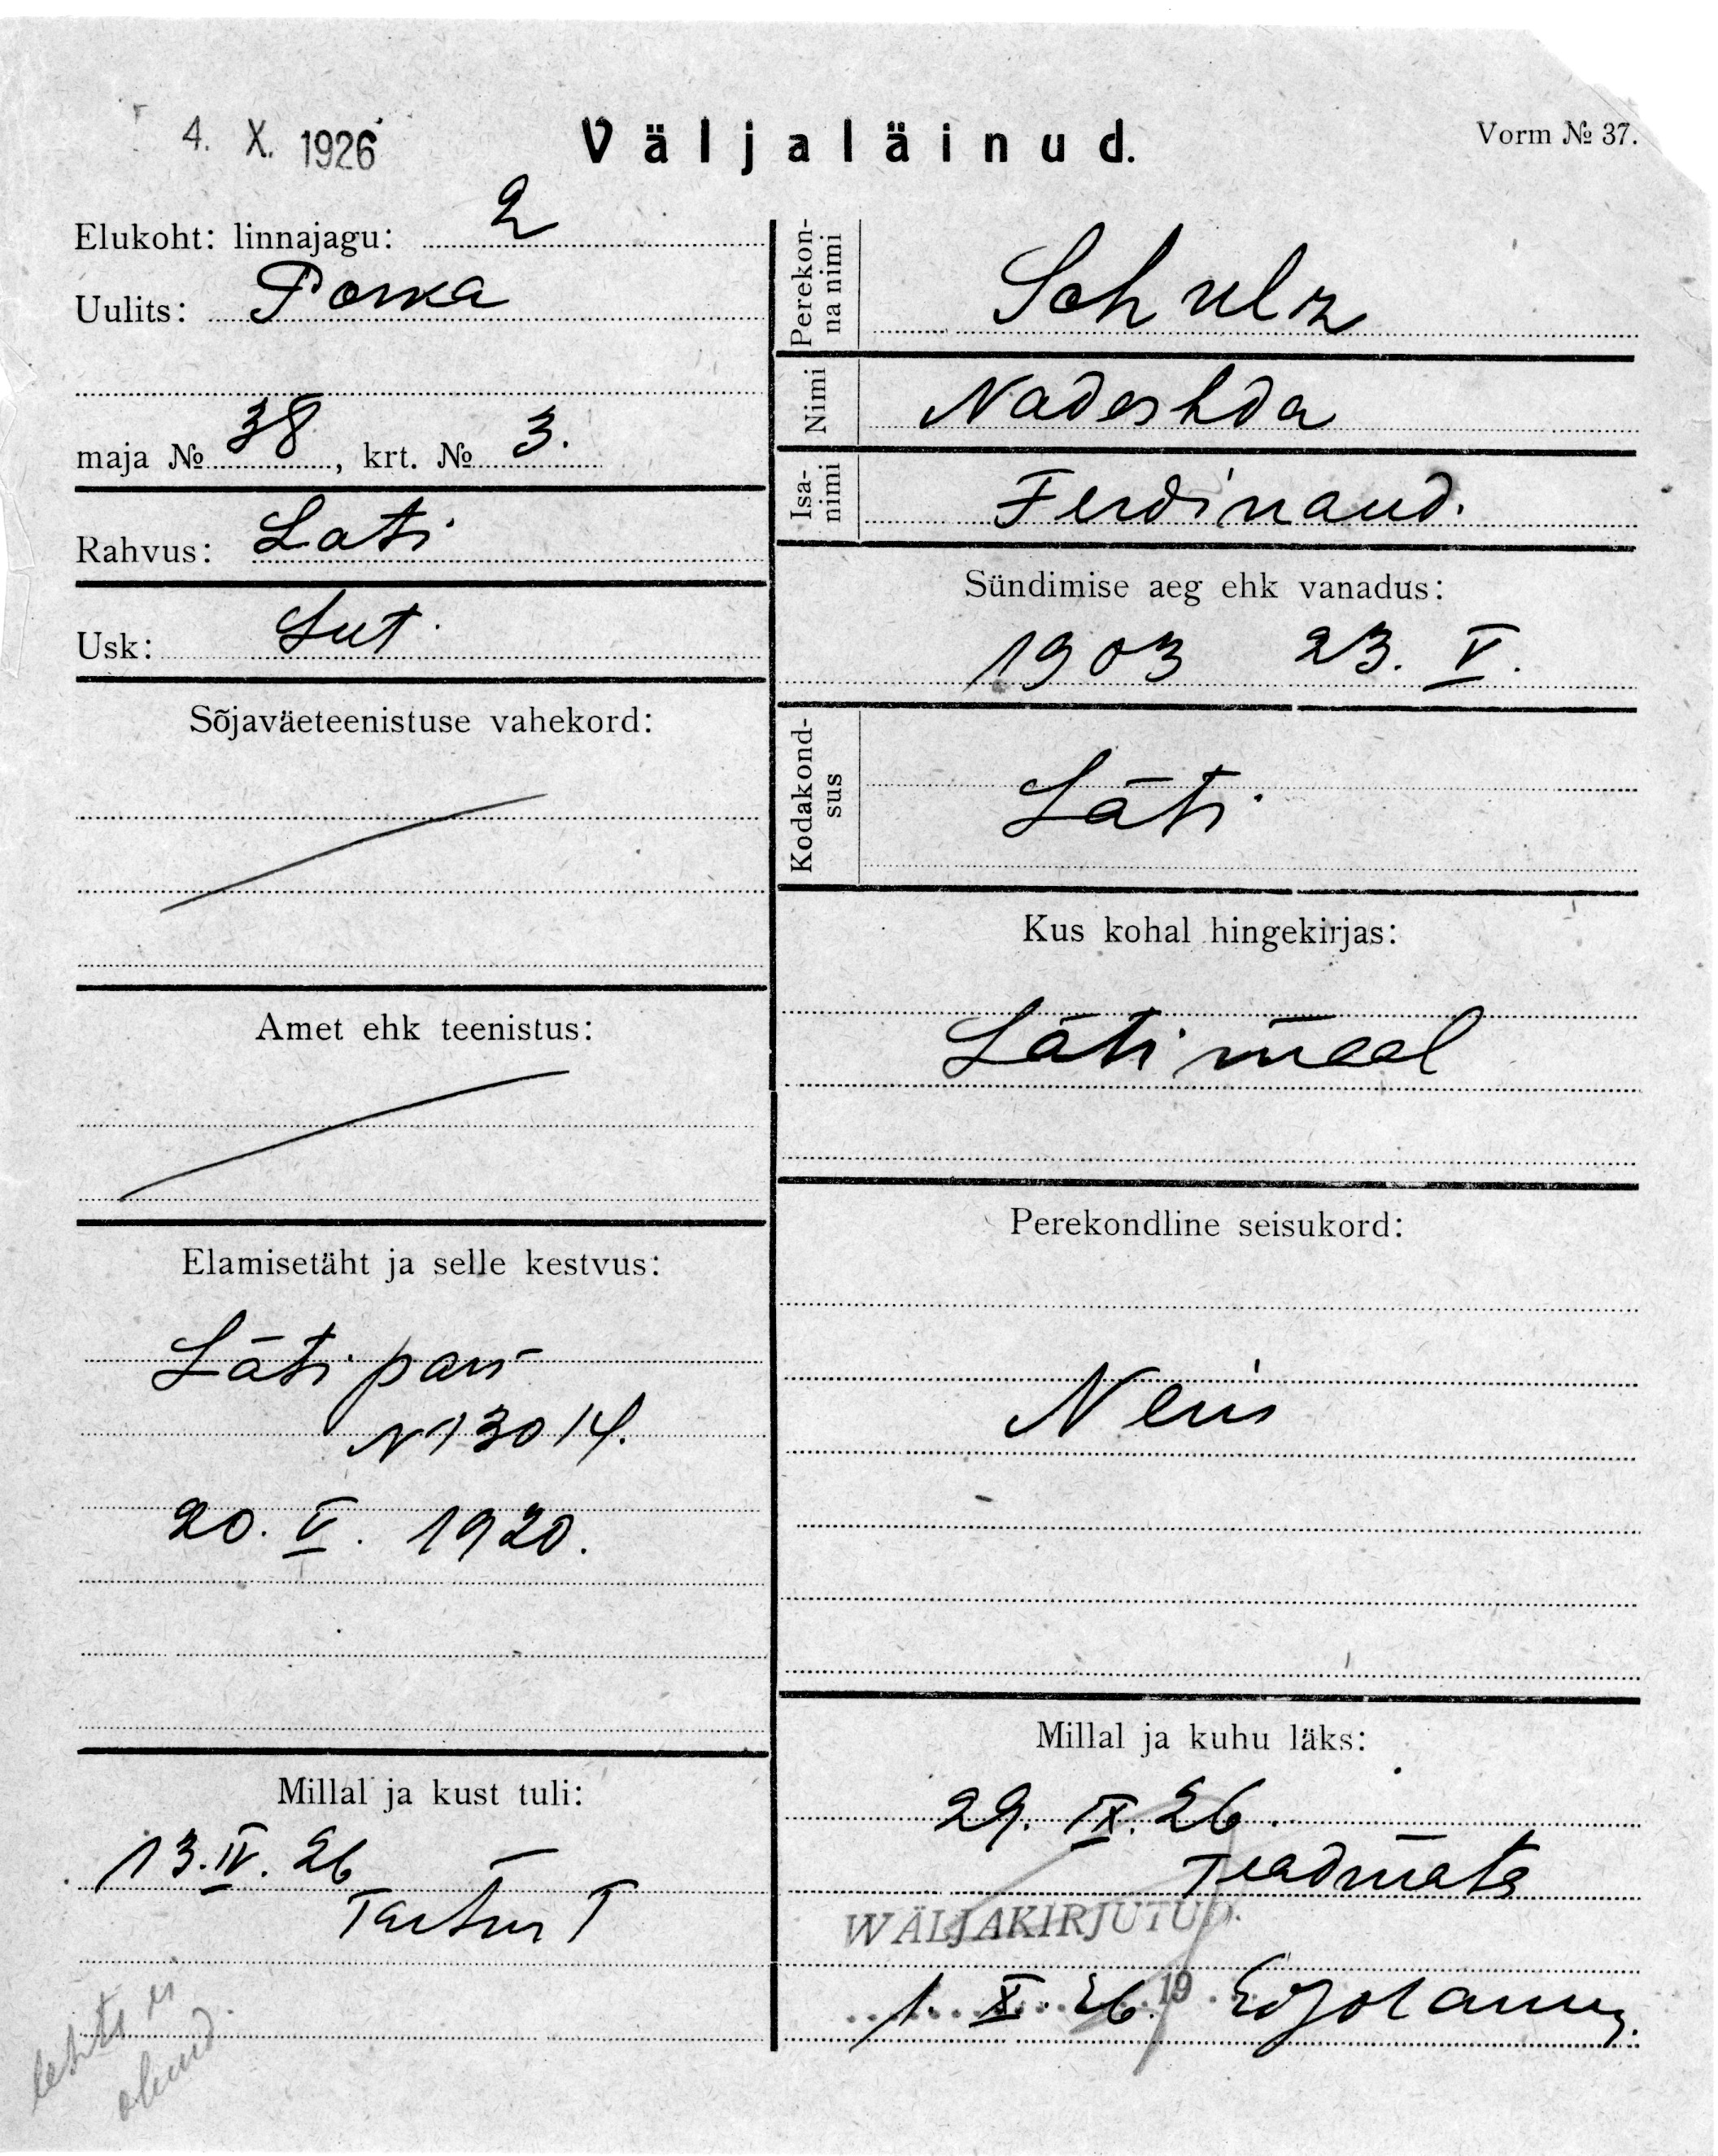 4. X. 1926
Väljaläinud.
Vorm № 37.
Elukoht: linnajagu: 2
Uulits: Poska
maja № 38, krt. № 3.
Rahvus: Läti
Usk: Lut.
Sõjaväeteenistuse vahekord:
Amet ehk teenistus:
Elamisetäht ja selle kestvus:
Läti pass
N 13014.
20. V. 1920.
Millal ja kust tuli:
13. IV. 26
Tartus T
lehte ei
olnud.
Perekonna nimi
Schulz
Nimi
Nadeshda
Isanimi
Ferdinand.
Sündimise aeg ehk vanadus:
1903 23. V.
Kodakondsus
Läti
Kus kohal hingekirjas:
Lätimaal
Perekondline seisukord:
Neiu
Millal ja kuhu läks:
29. IX. 26.
Teadmata
WÄLJAKIRJUTUD.
1. X. 26. 19